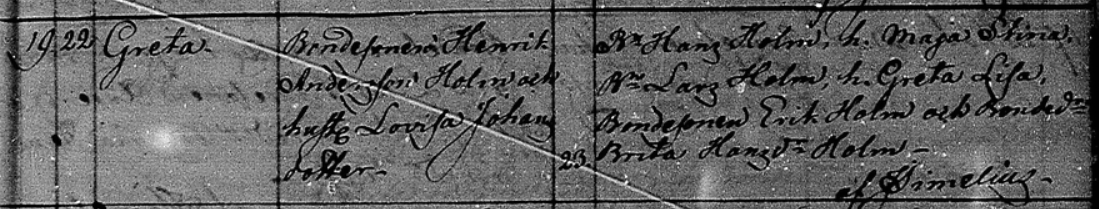 19. 22 Greta.
Bondesonen Henrik
Andersson Holm och
hust. Lovisa Johans
dotter-
23.
Bn Hans Holm, h. Maja Stina,
Bn Lars Holm, h. Greta Lisa,
Bondesonen Erik Holm och Bondedn
Brita Hansdr Holm-
af Simelius-